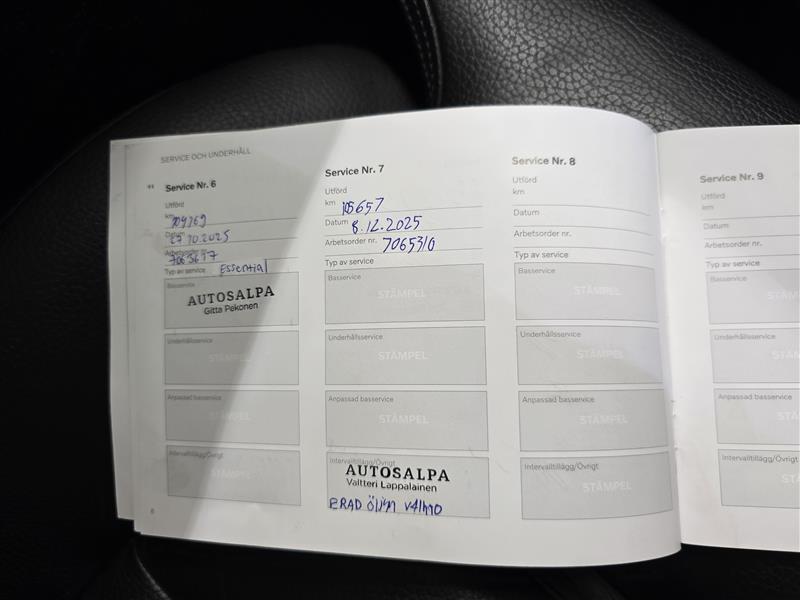 SERVICE OCH UNDERHÅLL
Service Nr. 6
Utförd
km 104769
Datum 27.10.2025
Arbetsorder nr.
Typ av service Essential
Basservice
AUTOSALPA
Gitta Pekonen
Underhållsservice
STÄMPEL
Anpassad basservice
STÄMPEL
Intervalltillägg/Övrigt
STÄMPEL
6
Service Nr. 7
Utförd
km 105657
Datum 8.12.2025
Arbetsorder nr. 7065310
Typ av service
Basservice
STÄMPEL
Underhållsservice
STÄMPEL
Anpassad basservice
STÄMPEL
Intervalltillägg/Övrigt
AUTOSALPA
Valtteri Lappalainen
ERAD öljyn vaihto
Service Nr. 8
Utförd
km
Datum
Arbetsorder nr.
Typ av service
Basservice
STÄMPEL
Underhållsservice
STÄMPEL
Anpassad basservice
STÄMPEL
Intervalltillägg/Övrigt
STÄMPEL
Service Nr. 9
Utförd
km
Datum
Arbetsorder nr.
Typ av service
Basservice
STÄM
Underhållsservice
STÄM
Anpassad basservice
STÄM
Intervalltillägg/Övrigt
STÄM